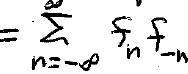 = ∑_{n=-∞}^{∞} f_n f_{-n}